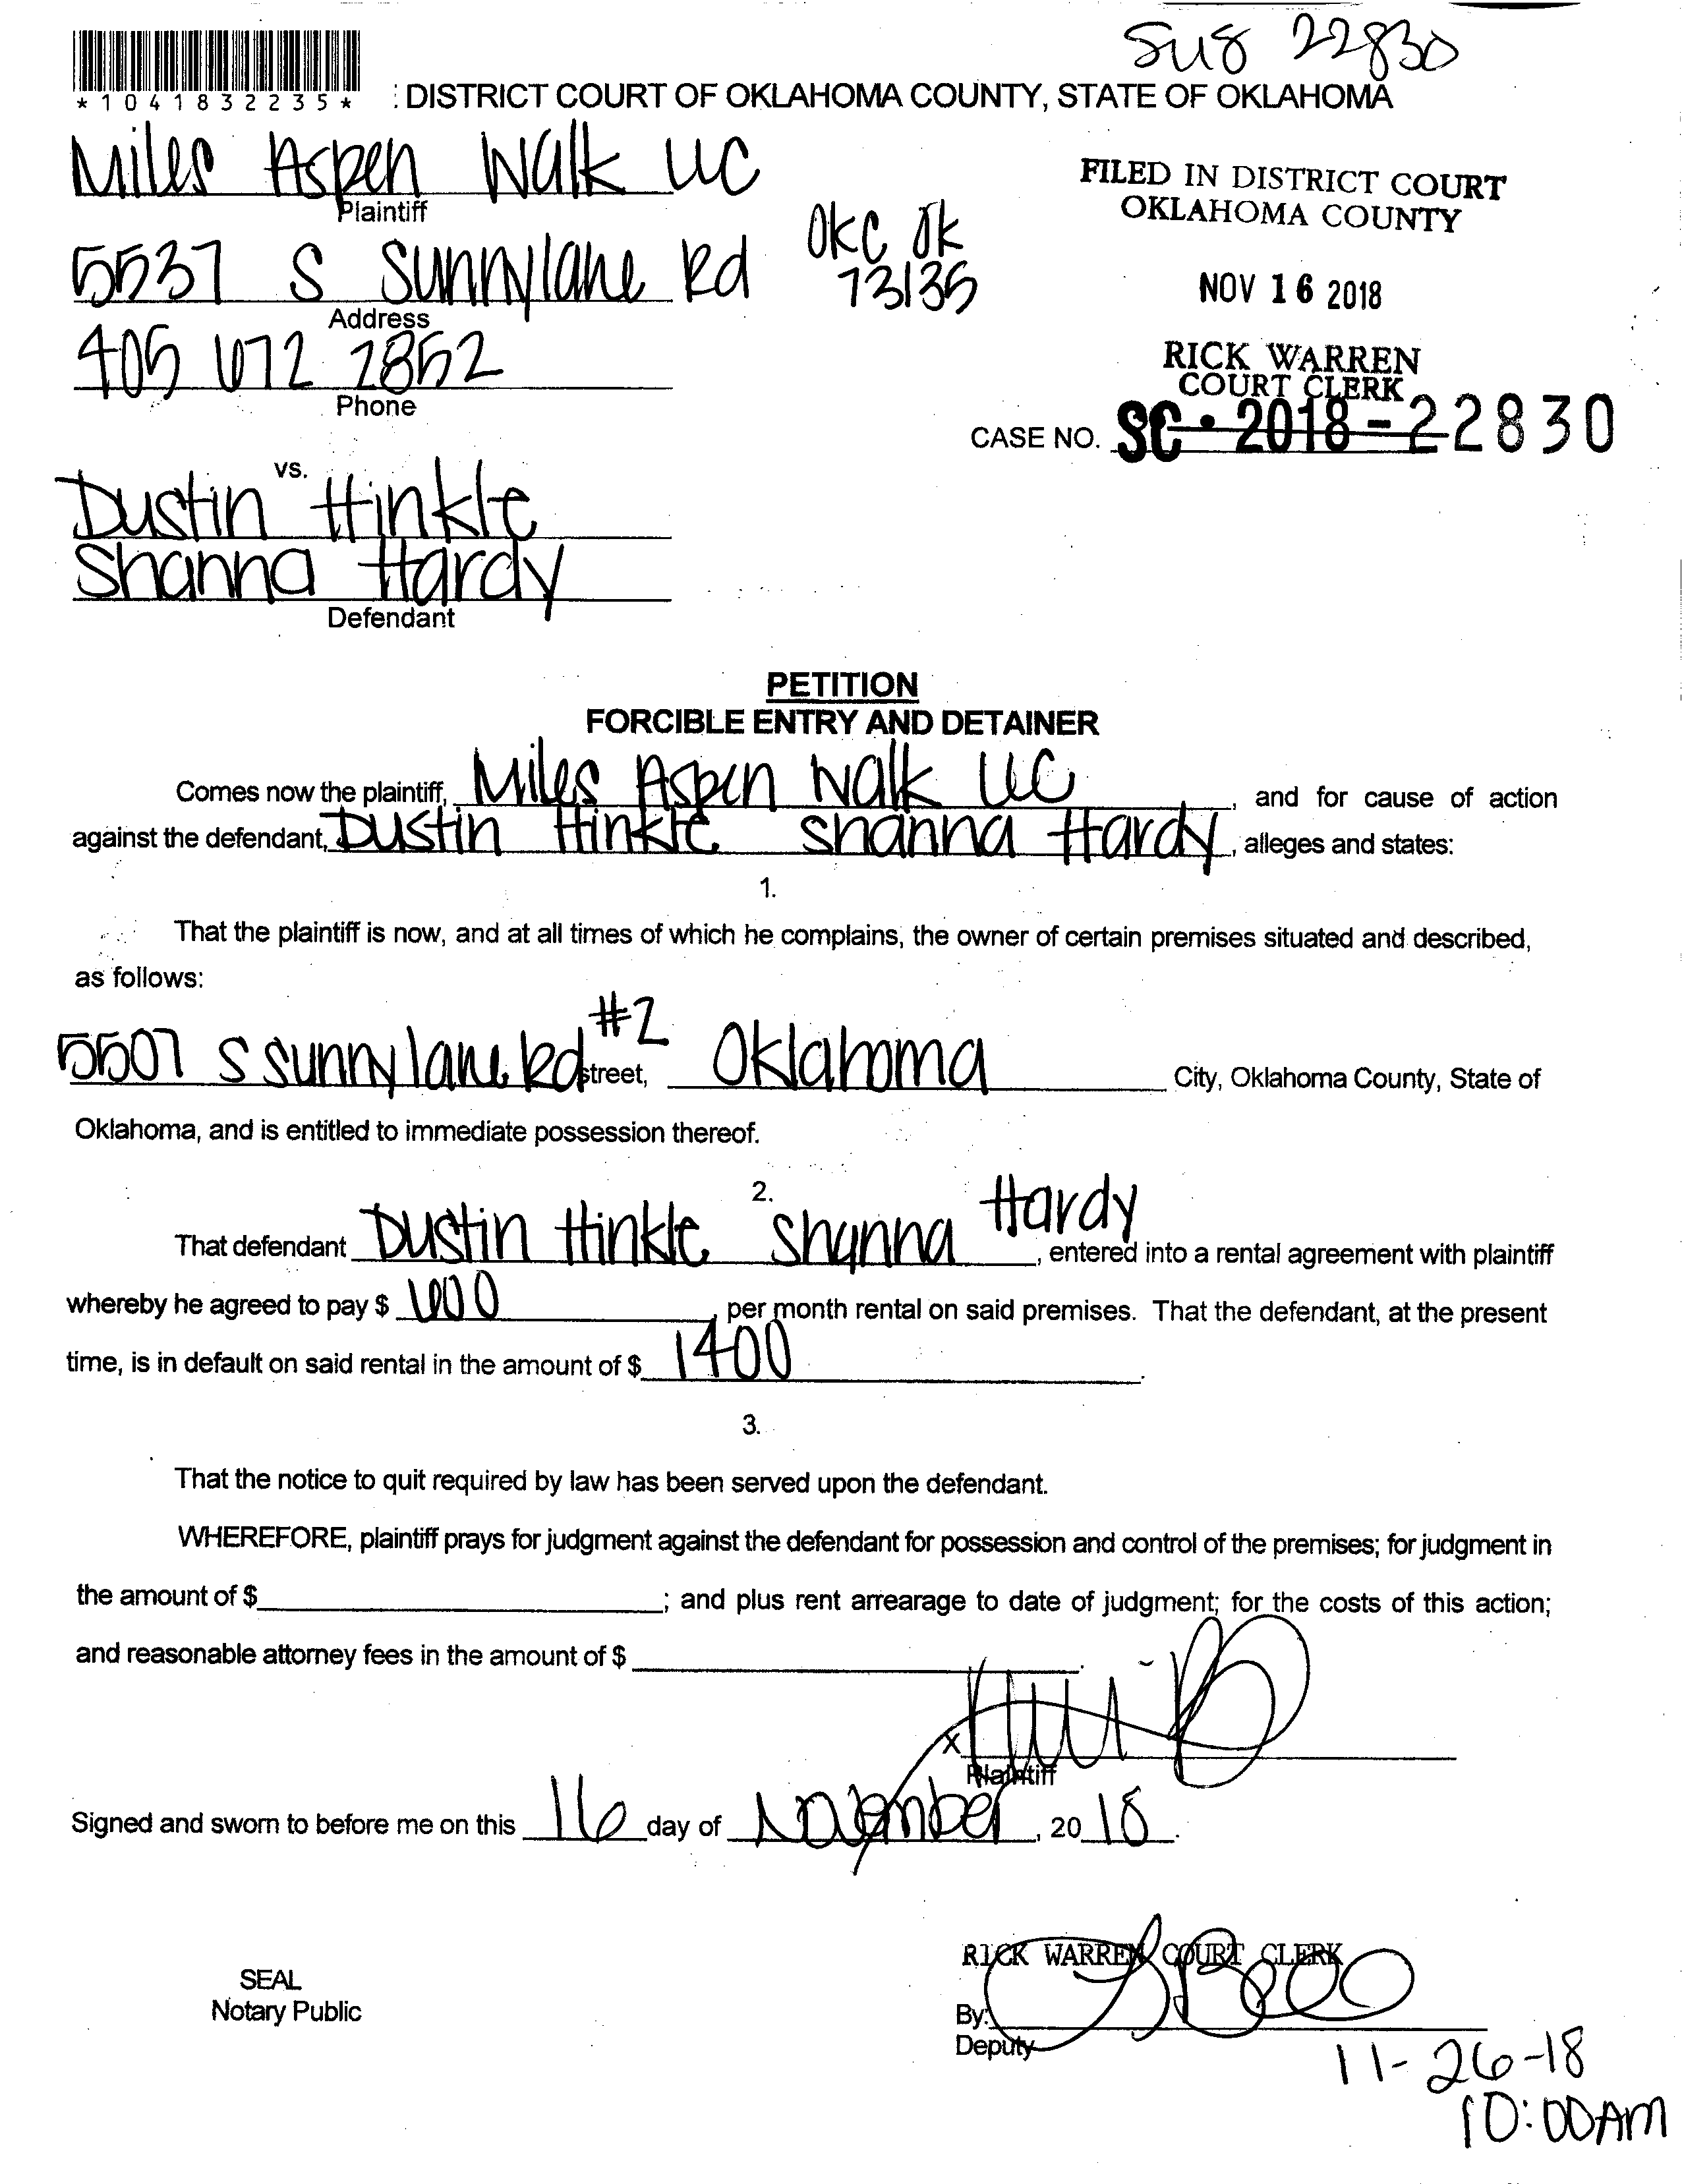 SU8 22830
*1041832235*
: DISTRICT COURT OF OKLAHOMA COUNTY, STATE OF OKLAHOMA
Miles Aspen Walk LLC
Plaintiff
FILED IN DISTRICT COURT
OKLAHOMA COUNTY
5537 S Sunnylane Rd OKC OK
73135
Address
NOV 16 2018
405 672 2852
Phone
RICK WARREN
COURT CLERK
CASE NO. SC-2018-22830
vs.
Dustin Hinkle
Shanna Hardy
Defendant
PETITION
FORCIBLE ENTRY AND DETAINER
Comes now the plaintiff, Miles Aspen Walk LLC, and for cause of action
against the defendant, Dustin Hinkle Shanna Hardy, alleges and states:
1.
That the plaintiff is now, and at all times of which he complains, the owner of certain premises situated and described,
as follows:
5507 S Sunnylane Rd #2 Street, Oklahoma City, Oklahoma County, State of
Oklahoma, and is entitled to immediate possession thereof.
2.
That defendant Dustin Hinkle Shanna Hardy, entered into a rental agreement with plaintiff
whereby he agreed to pay $ , per month rental on said premises. That the defendant, at the present
time, is in default on said rental in the amount of $ 1400.
3.
That the notice to quit required by law has been served upon the defendant.
WHEREFORE, plaintiff prays for judgment against the defendant for possession and control of the premises; for judgment in
the amount of $ ; and plus rent arrearage to date of judgment; for the costs of this action;
and reasonable attorney fees in the amount of $ .
X
Plaintiff
Signed and sworn to before me on this 16 day of November, 2018.
RICK WARREN COURT CLERK
SEAL
Notary Public
By:
Deputy
11-26-18
10:00AM